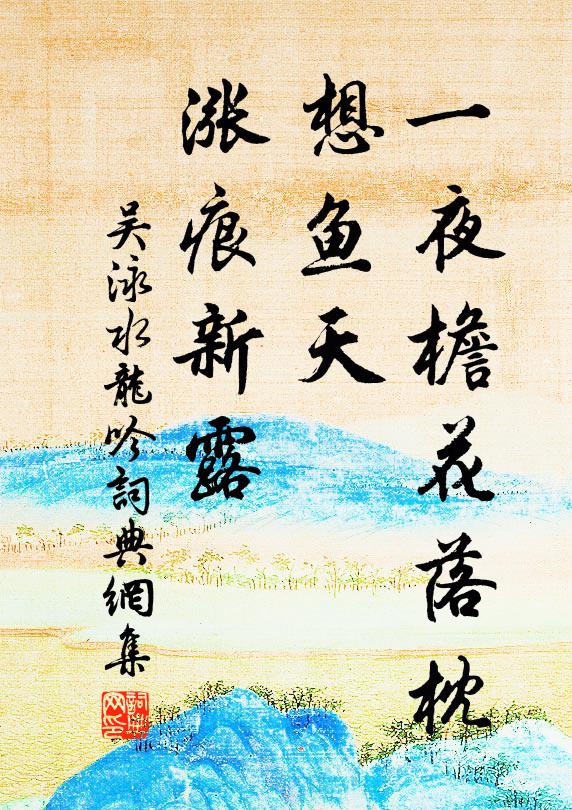 一夜檐花落枕
想鱼天
涨痕新露
吴泳水龍吟詞典網集